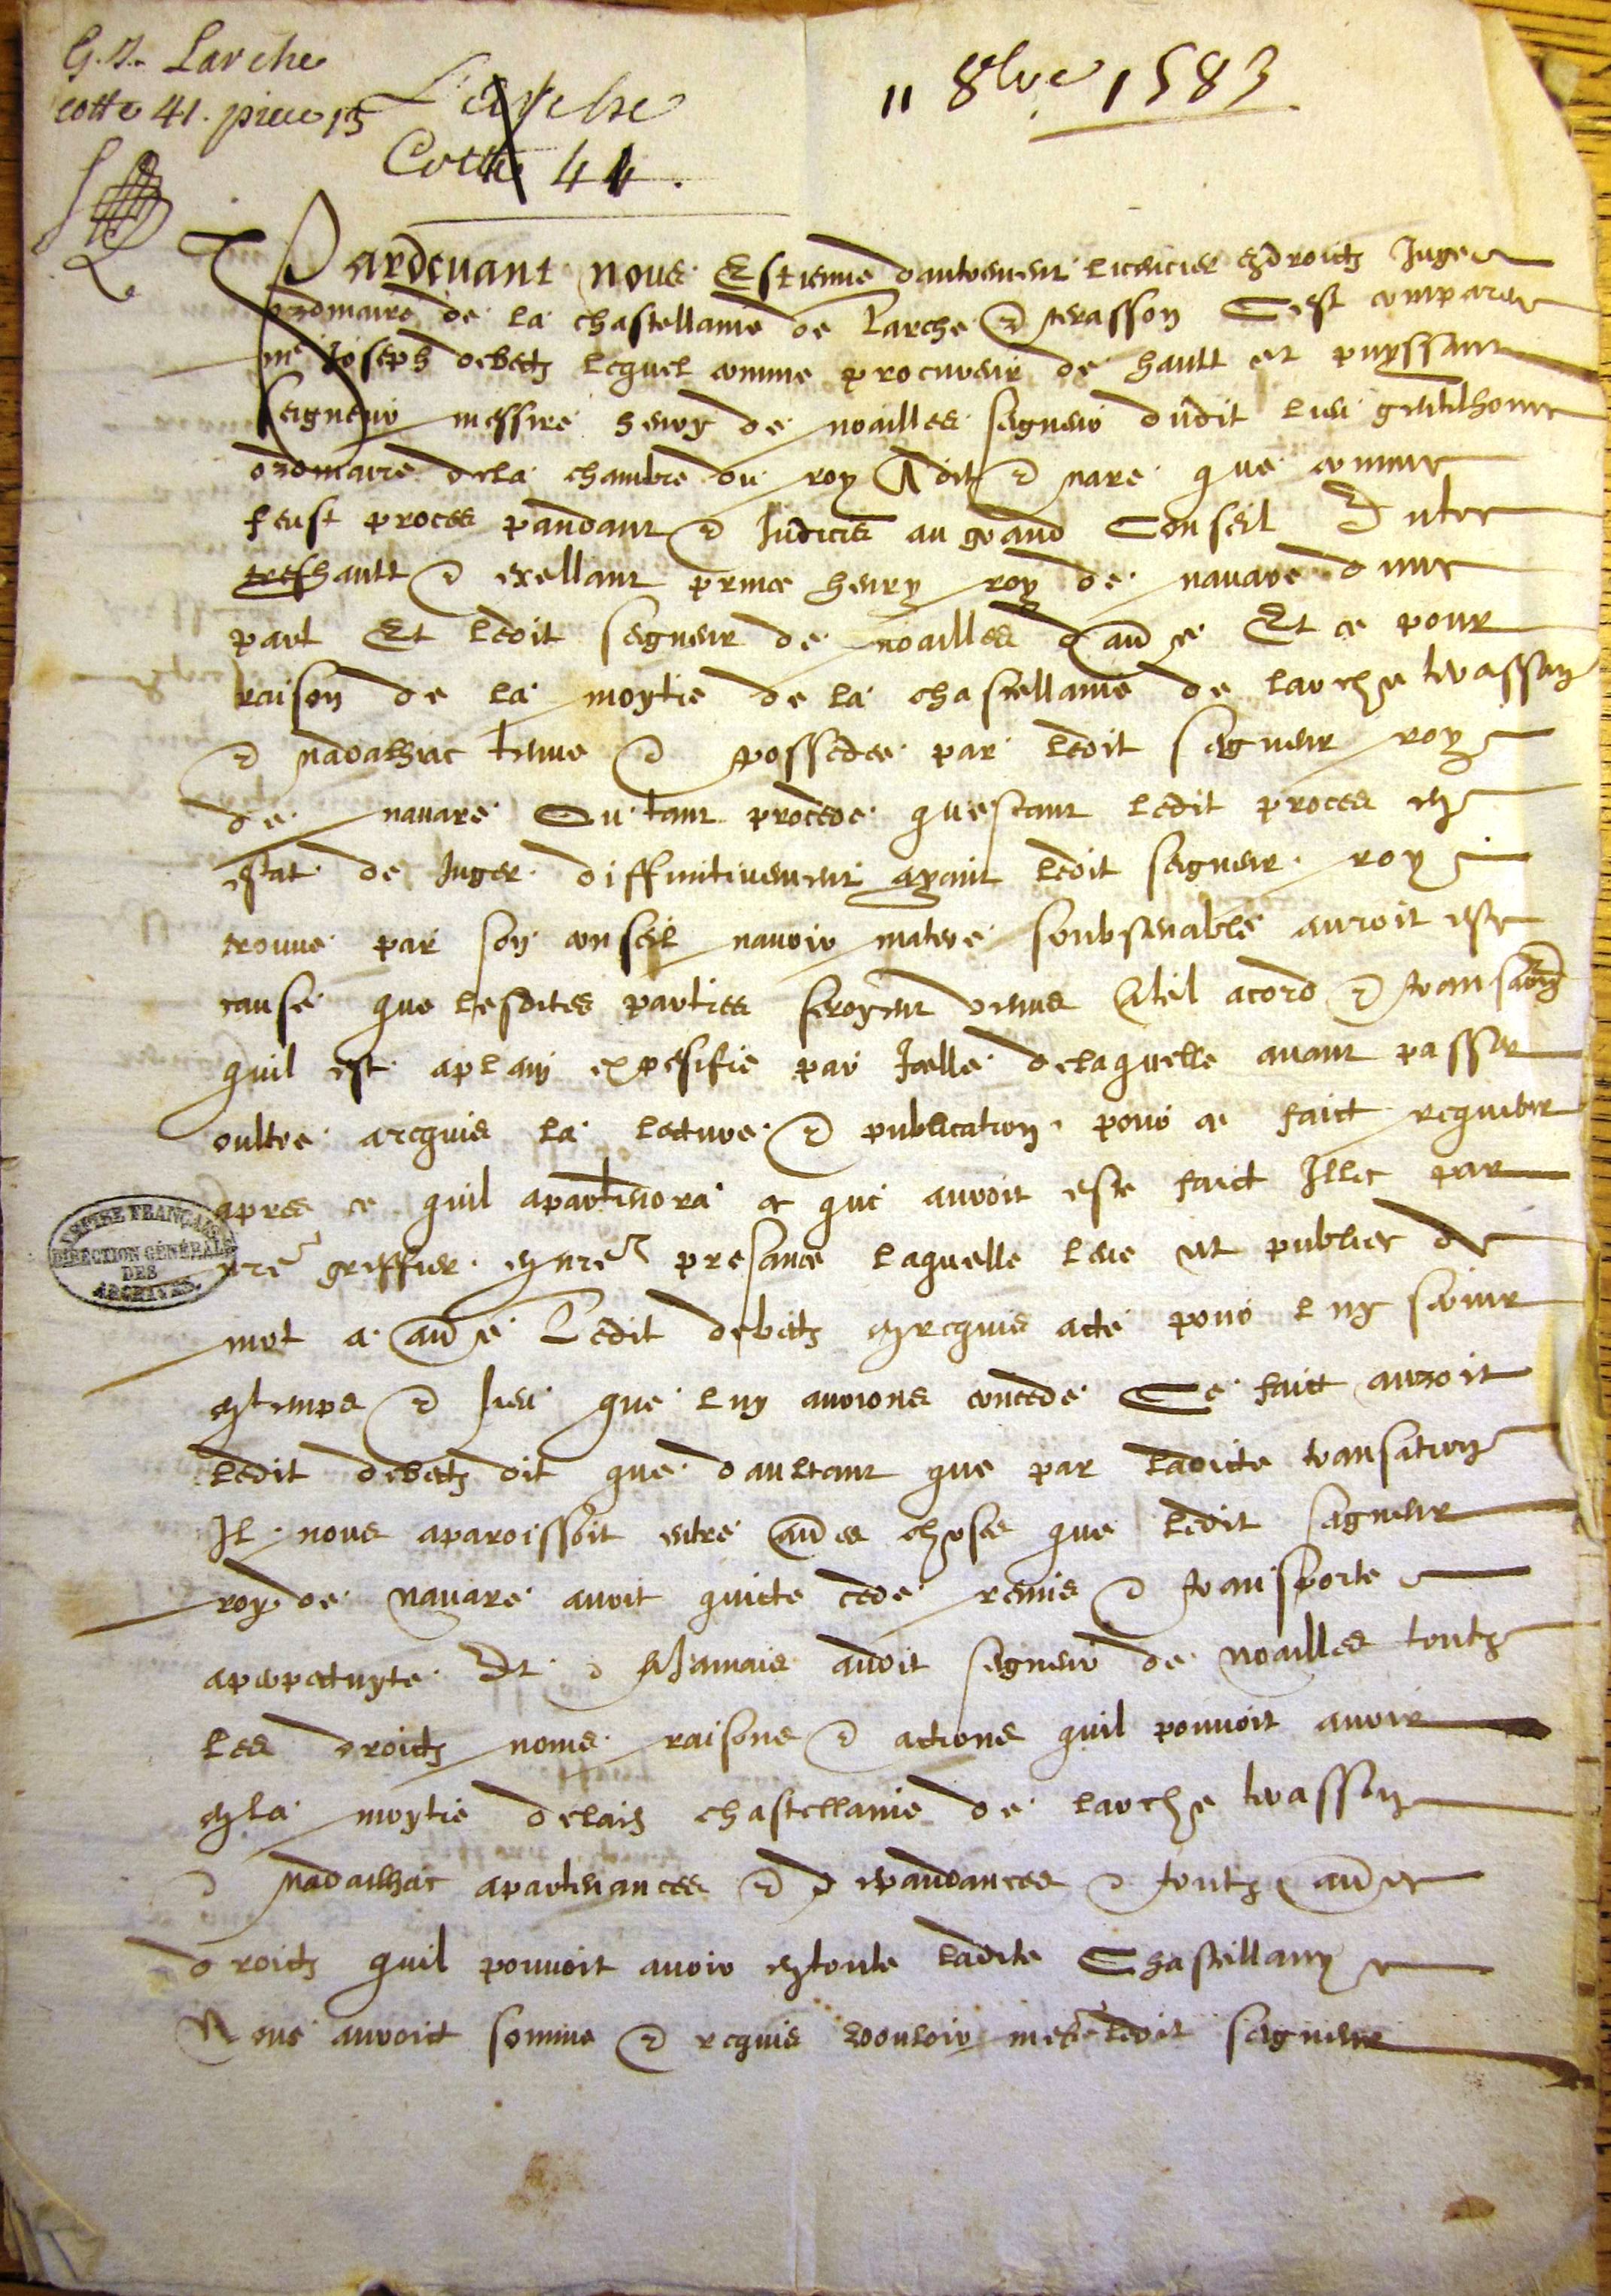 G. I. Larche
cotte 41. piece 15
Larche
Cotte 41.
11 8bre 1583
Pardevant nous Estienne dautrement licencier en droictz Juge
ordinaire de la chastellanie de Larche et terasson C est comparer
me Joseph debetz lequel comme procureur de hault et puyssant
seigneur messire henry de noailles seigneur dudit lieu gentilhome
ordinaire de la chambre du roy A dit et nare que comme
feust proces pandant et Indicis au grand Conseil Entre
treshault et exellant prince henry roy de navare dune
part Et ledit segneur de noailles daue Et ce pour
raison de la moytie de la chastellanie de larche terasson
et nadalhac tenue et possedee par ledit segneur roy
de navare Ou tant procede questant ledit proces en
estat de Juger diffinitivement ayant ledit segneur roy
trouve par son conseil navoir matere soubstenable auroit este
cause que lesdites parties seroyent venus A tel acord et transaction
quil est aplain expesifie par Icelle delaquelle avant passer
oultre arequis la lecture et publication pour ce faict requerir
apres ce quil apartiendra ce que auroit este faict Illec par
nre greffier en nre presance laquelle leue et publiee de
mot a aue Ledit debetz en requis acte pour luy servir
en temps et lieu que luy aurions concede Ce faict auroit
ledit debetz dit que daultant que par ladicte transation
Il nous aparoissoit entre aues choses que ledit segneur
roy de navare avoit quicte cede remis et transporte
aperpetuyte Et a Jamais audit segneur de noailles toutz
les droictz noms raisons et actions quil pouvoit avoir
en la moytie delad chastellanie de larche terasson
et nadailhac apartenances et depandances et toutz aues
droictz quil pouvoit avoir en toute ladite Chastellanye
Nous auroict somme et requis vouloir metre ledit segneur
EMPIRE FRANÇAIS
DIRECTION GÉNÉRALE
DES
ARCHIVES